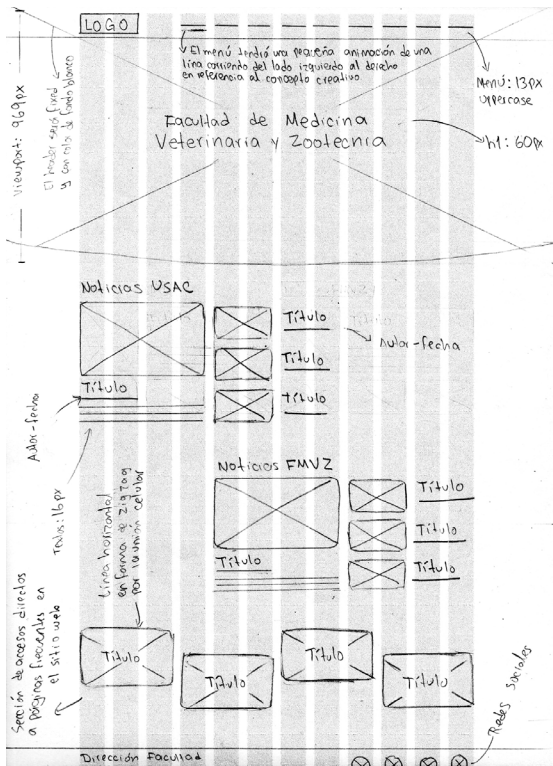 LOGO
El menú tendrá una pequeña animación de una
línea corriendo del lado izquierdo al derecho
en referencia al concepto creativo.
Menú: 13px
Uppercase
Viewport: 969px
El header será fixed
y con color de fondo blanco
Facultad de Medicina
Veterinaria y Zootecnia
h1: 60px
Noticias USAC
Título
Título
Título
Autor-fecha
Título
Autor-fecha
Textos: 16px
Noticias FMVZ
Título
Título
Título
Título
Línea horizontal
en forma de zigzag
por la unión celular
Sección de accesos directos
a páginas frecuentes en
el sitio web
Título
Título
Título
Título
Redes sociales
Dirección Facultad